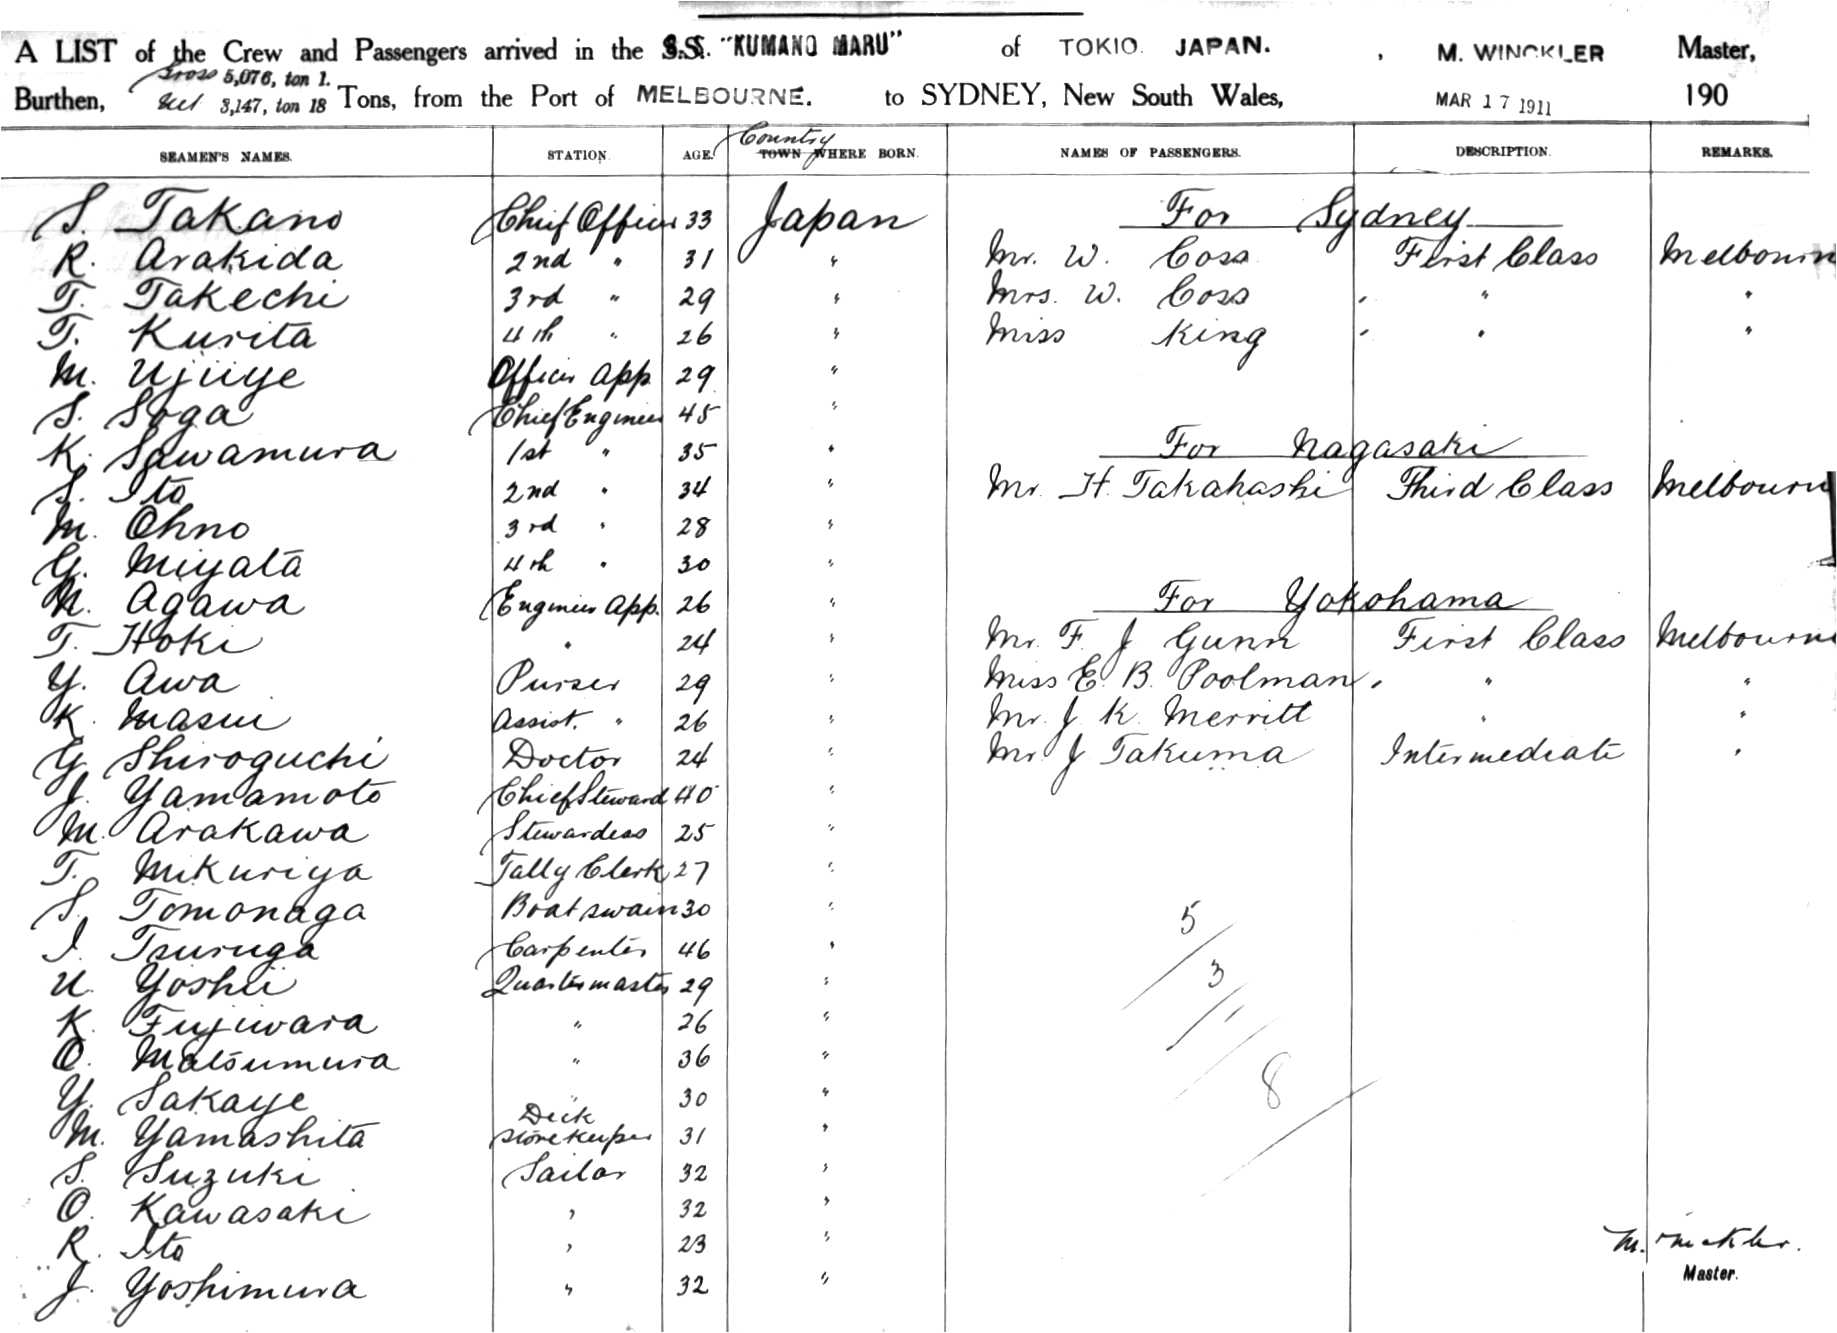 A LIST of the Crew and Passengers arrived in the S.S. "KUMANO MARU" of TOKIO. JAPAN. , M. WINCKLER Master,
Burthen, Gross 5,076, ton 1. Nett 3,147, ton 18 Tons, from the Port of MELBOURNE. to SYDNEY, New South Wales, MAR 17 1911 190
SEAMEN'S NAMES. STATION. AGE. Country TOWN WHERE BORN. NAMES OF PASSENGERS. DESCRIPTION. REMARKS.
S. Takano Chief Officer 33 Japan For Sydney
R. Arakida 2nd " 31 " Mr. W. Coss First Class Melbourne
T. Takechi 3rd " 29 " Mrs. W. Coss " " "
T. Kurita 4th " 26 " Miss King " " "
M. Ujiiye Officer App 29 "
S. Soga Chief Engineer 45 "
K. Sawamura 1st " 35 " For Nagasaki
S. Ito 2nd " 34 " Mr. H. Takahashi Third Class Melbourne
M. Ohno 3rd " 28 "
G. Miyata 4th " 30 "
N. Agawa Engineer App. 26 " For Yokohama
T. Hoki " 24 " Mr. F. J Gunn First Class Melbourne
Y. Awa Purser 29 " Miss E. B. Poolman " " "
K. Masui Assist. " 26 " Mr. J. K. Merritt " "
G. Shiroguchi Doctor 24 " Mr J Takuma Intermediate "
J. Yamamoto Chief Steward 40 "
M. Arakawa Stewardess 25 "
T. Mikuriya Tally Clerk 27 "
S. Tomonaga Boatswain 30 "
I. Tsuruga Carpenter 46 "
U. Yoshii Quartermaster 29 "
K. Fujiwara " 26 "
O. Matsumura " 36 "
Y. Sakaye " 30 "
M. Yamashita Deck Storekeeper 31 "
S. Suzuki Sailor 32 "
O. Kawasaki " 32 "
R. Ito " 23 "
J. Yoshimura " 32 "
5
3
1
8
M. Winckler.
Master.